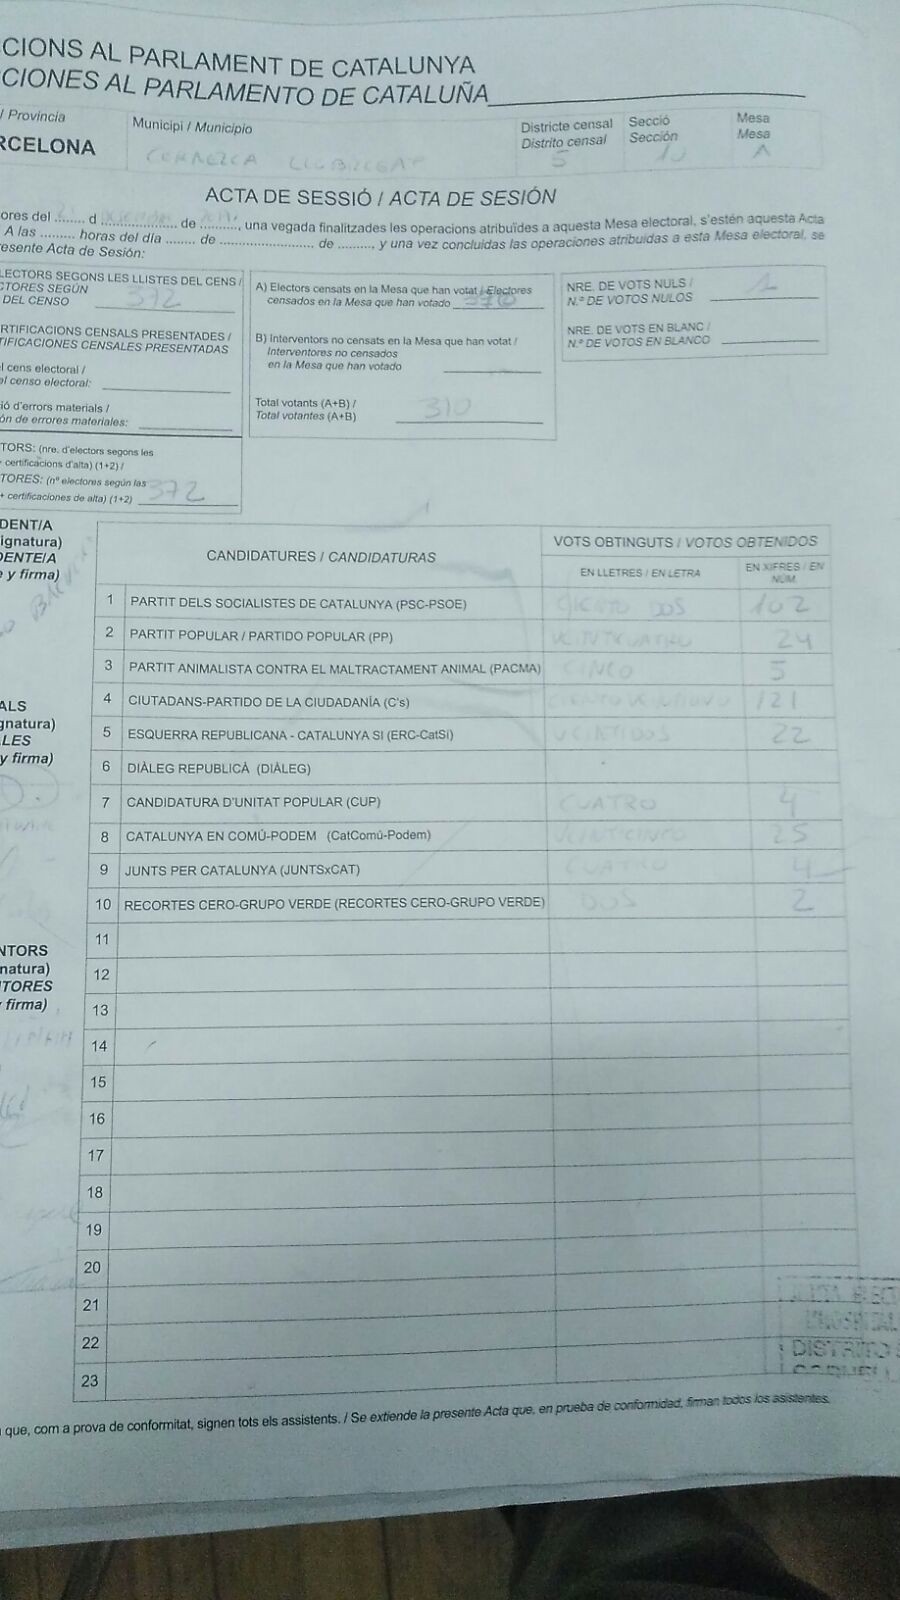 CIONS AL PARLAMENT DE CATALUNYA
CIONES AL PARLAMENTO DE CATALUÑA
/ Provincia
RCELONA
Municipi / Municipio
Districte censal
Distrito censal
5
Secció
Sección
10
Mesa
Mesa
A
ACTA DE SESSIÓ / ACTA DE SESIÓN
ores del ........ d .................... de .........., una vegada finalitzades les operacions atribuïdes a aquesta Mesa electoral, s'estén aquesta Acta
A las ......... horas del día ....... de ....................... de ........., y una vez concluidas las operaciones atribuidas a esta Mesa electoral, se
esente Acta de Sesión:
LECTORS SEGONS LES LLISTES DEL CENS /
CTORES SEGÚN
DEL CENSO 372
RTIFICACIONS CENSALS PRESENTADES /
TIFICACIONES CENSALES PRESENTADAS
el cens electoral /
el censo electoral:
ió d'errors materials /
ón de errores materiales:
TORS: (nre. d'electors segons les
+ certificacions d'alta) (1+2) /
TORES: (nº electores según las
+ certificaciones de alta) (1+2) 372
A) Electors censats en la Mesa que han votat / Electores
censados en la Mesa que han votado 310
B) Interventors no censats en la Mesa que han votat /
Interventores no censados
en la Mesa que han votado
Total votants (A+B) /
Total votantes (A+B) 310
NRE. DE VOTS NULS /
N.º DE VOTOS NULOS 1
NRE. DE VOTS EN BLANC /
N.º DE VOTOS EN BLANCO
DENT/A
ignatura)
DENTE/A
e y firma)
ALS
gnatura)
ALES
y firma)
NTORS
natura)
ITORES
y firma)
CANDIDATURES / CANDIDATURAS
VOTS OBTINGUTS / VOTOS OBTENIDOS
EN LLETRES / EN LETRA
EN XIFRES / EN
NÚM.
1 PARTIT DELS SOCIALISTES DE CATALUNYA (PSC-PSOE) CIENTO DOS 102
2 PARTIT POPULAR / PARTIDO POPULAR (PP) VEINTICUATRO 24
3 PARTIT ANIMALISTA CONTRA EL MALTRACTAMENT ANIMAL (PACMA) CINCO 5
4 CIUTADANS-PARTIDO DE LA CIUDADANÍA (C's) CIENTO VEINTIUNO 121
5 ESQUERRA REPUBLICANA - CATALUNYA SI (ERC-CatSí) VEINTIDOS 22
6 DIÀLEG REPUBLICÀ (DIÀLEG)
7 CANDIDATURA D'UNITAT POPULAR (CUP) CUATRO 4
8 CATALUNYA EN COMÚ-PODEM (CatComú-Podem) VEINTICINCO 25
9 JUNTS PER CATALUNYA (JUNTSxCAT) CUATRO 4
10 RECORTES CERO-GRUPO VERDE (RECORTES CERO-GRUPO VERDE) DOS 2
11
12
13
14
15
16
17
18
19
20
21
22
23
DISTRITO
que, com a prova de conformitat, signen tots els assistents. / Se extiende la presente Acta que, en prueba de conformidad, firman todos los asistentes.